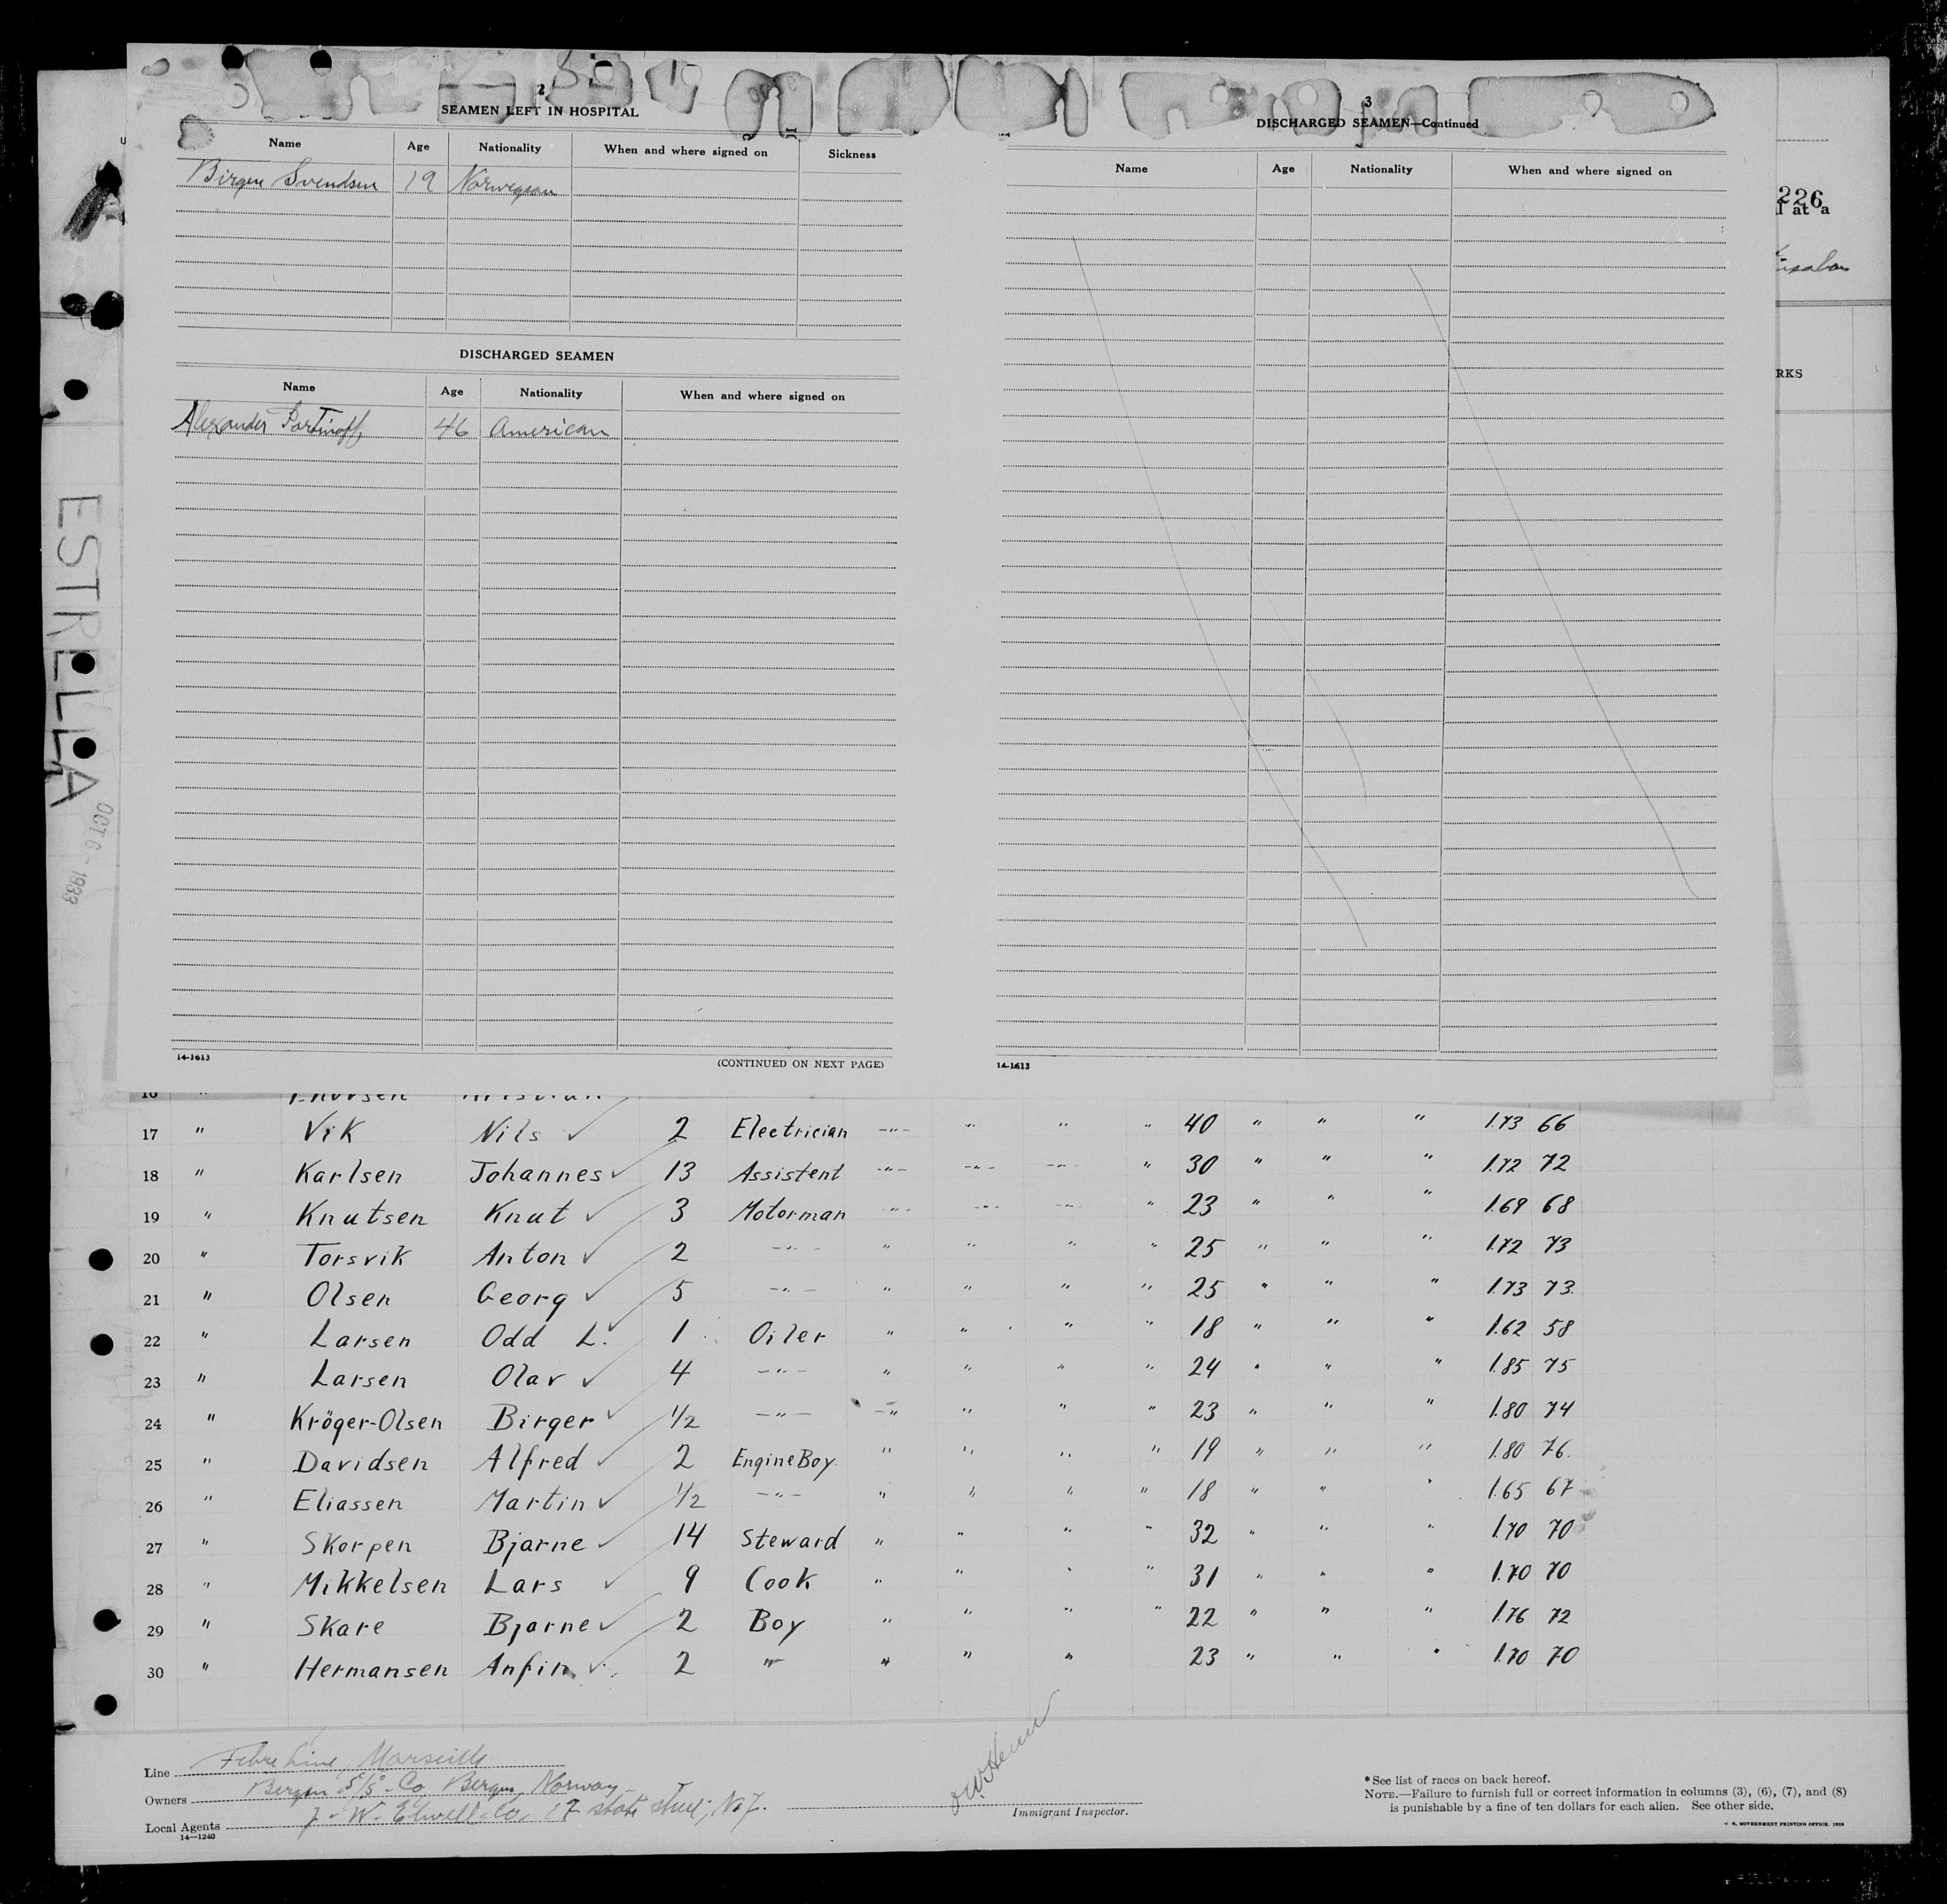 2
SEAMEN LEFT IN HOSPITAL
Name Age Nationality When and where signed on Sickness
Birger Svendsen 19 Norwegian
DISCHARGED SEAMEN
Name Age Nationality When and where signed on
Alexander 46 American
14-1613 (CONTINUED ON NEXT PAGE)
3
DISCHARGED SEAMEN—Continued
Name Age Nationality When and where signed on
14-1613
226
l at a
RKS
ESTRELLA
OCT 6 - 1933
16 "
17 " Vik Nils ✓ 2 Electrician -"- " " " 40 " " " 1.73 66
18 " Karlsen Johannes ✓ 13 Assistent -"- -"- -"- " 30 " " " 1.72 72
19 " Knutsen Knut ✓ 3 Motorman -"- -"- -"- " 23 " " " 1.69 68
20 " Torsvik Anton ✓ 2 -"- " " " " 25 " " " 1.72 73
21 " Olsen Georg ✓ 5 -"- " " " " 25 " " " 1.73 73.
22 " Larsen Odd L. ✓ 1 Oiler " " " " 18 " " " 1.62 58
23 " Larsen Olav ✓ 4 -"- " " " " 24 " " " 1.85 75
24 " Kröger-Olsen Birger ✓ 1/2 -"- -"- " " " 23 " " " 1.80 74
25 " Davidsen Alfred ✓ 2 Engine Boy " " " " 19 " " " 1.80 76.
26 " Eliassen Martin ✓ 1/2 -"- " " " " 18 " " " 1.65 67
27 " Skorpen Bjarne ✓ 14 Steward " " " " 32 " " " 1.70 70
28 " Mikkelsen Lars ✓ 9 Cook " " " " 31 " " " 1.70 70
29 " Skare Bjarne ✓ 2 Boy " " " " 22 " " " 1.76 72
30 " Hermansen Anfin ✓ 2 " " " " 23 " " " 1.70 70
Line Fabre Line Marseille
Owners Bergen S/S. Co Bergen, Norway
Local Agents J. W. Elwell & Co, 17 State Street, N.Y.
14—1240
Immigrant Inspector.
* See list of races on back hereof.
NOTE.—Failure to furnish full or correct information in columns (3), (6), (7), and (8)
is punishable by a fine of ten dollars for each alien. See other side.
U. S. GOVERNMENT PRINTING OFFICE.